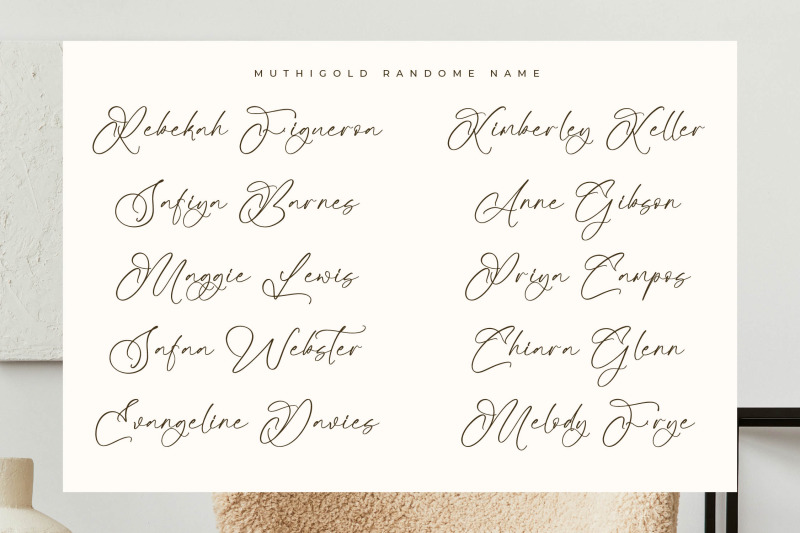 MUTHIGOLD RANDOME NAME
Rebekah Figueroa
Safiya Barnes
Maggie Lewis
Safaa Webster
Evangeline Davies
Kimberley Keller
Anne Gibson
Priya Campos
Chiara Glenn
Melody Frye